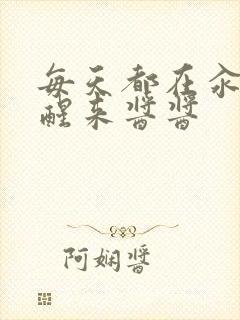 每天都在汆
醒来酱酱
阿娴酱